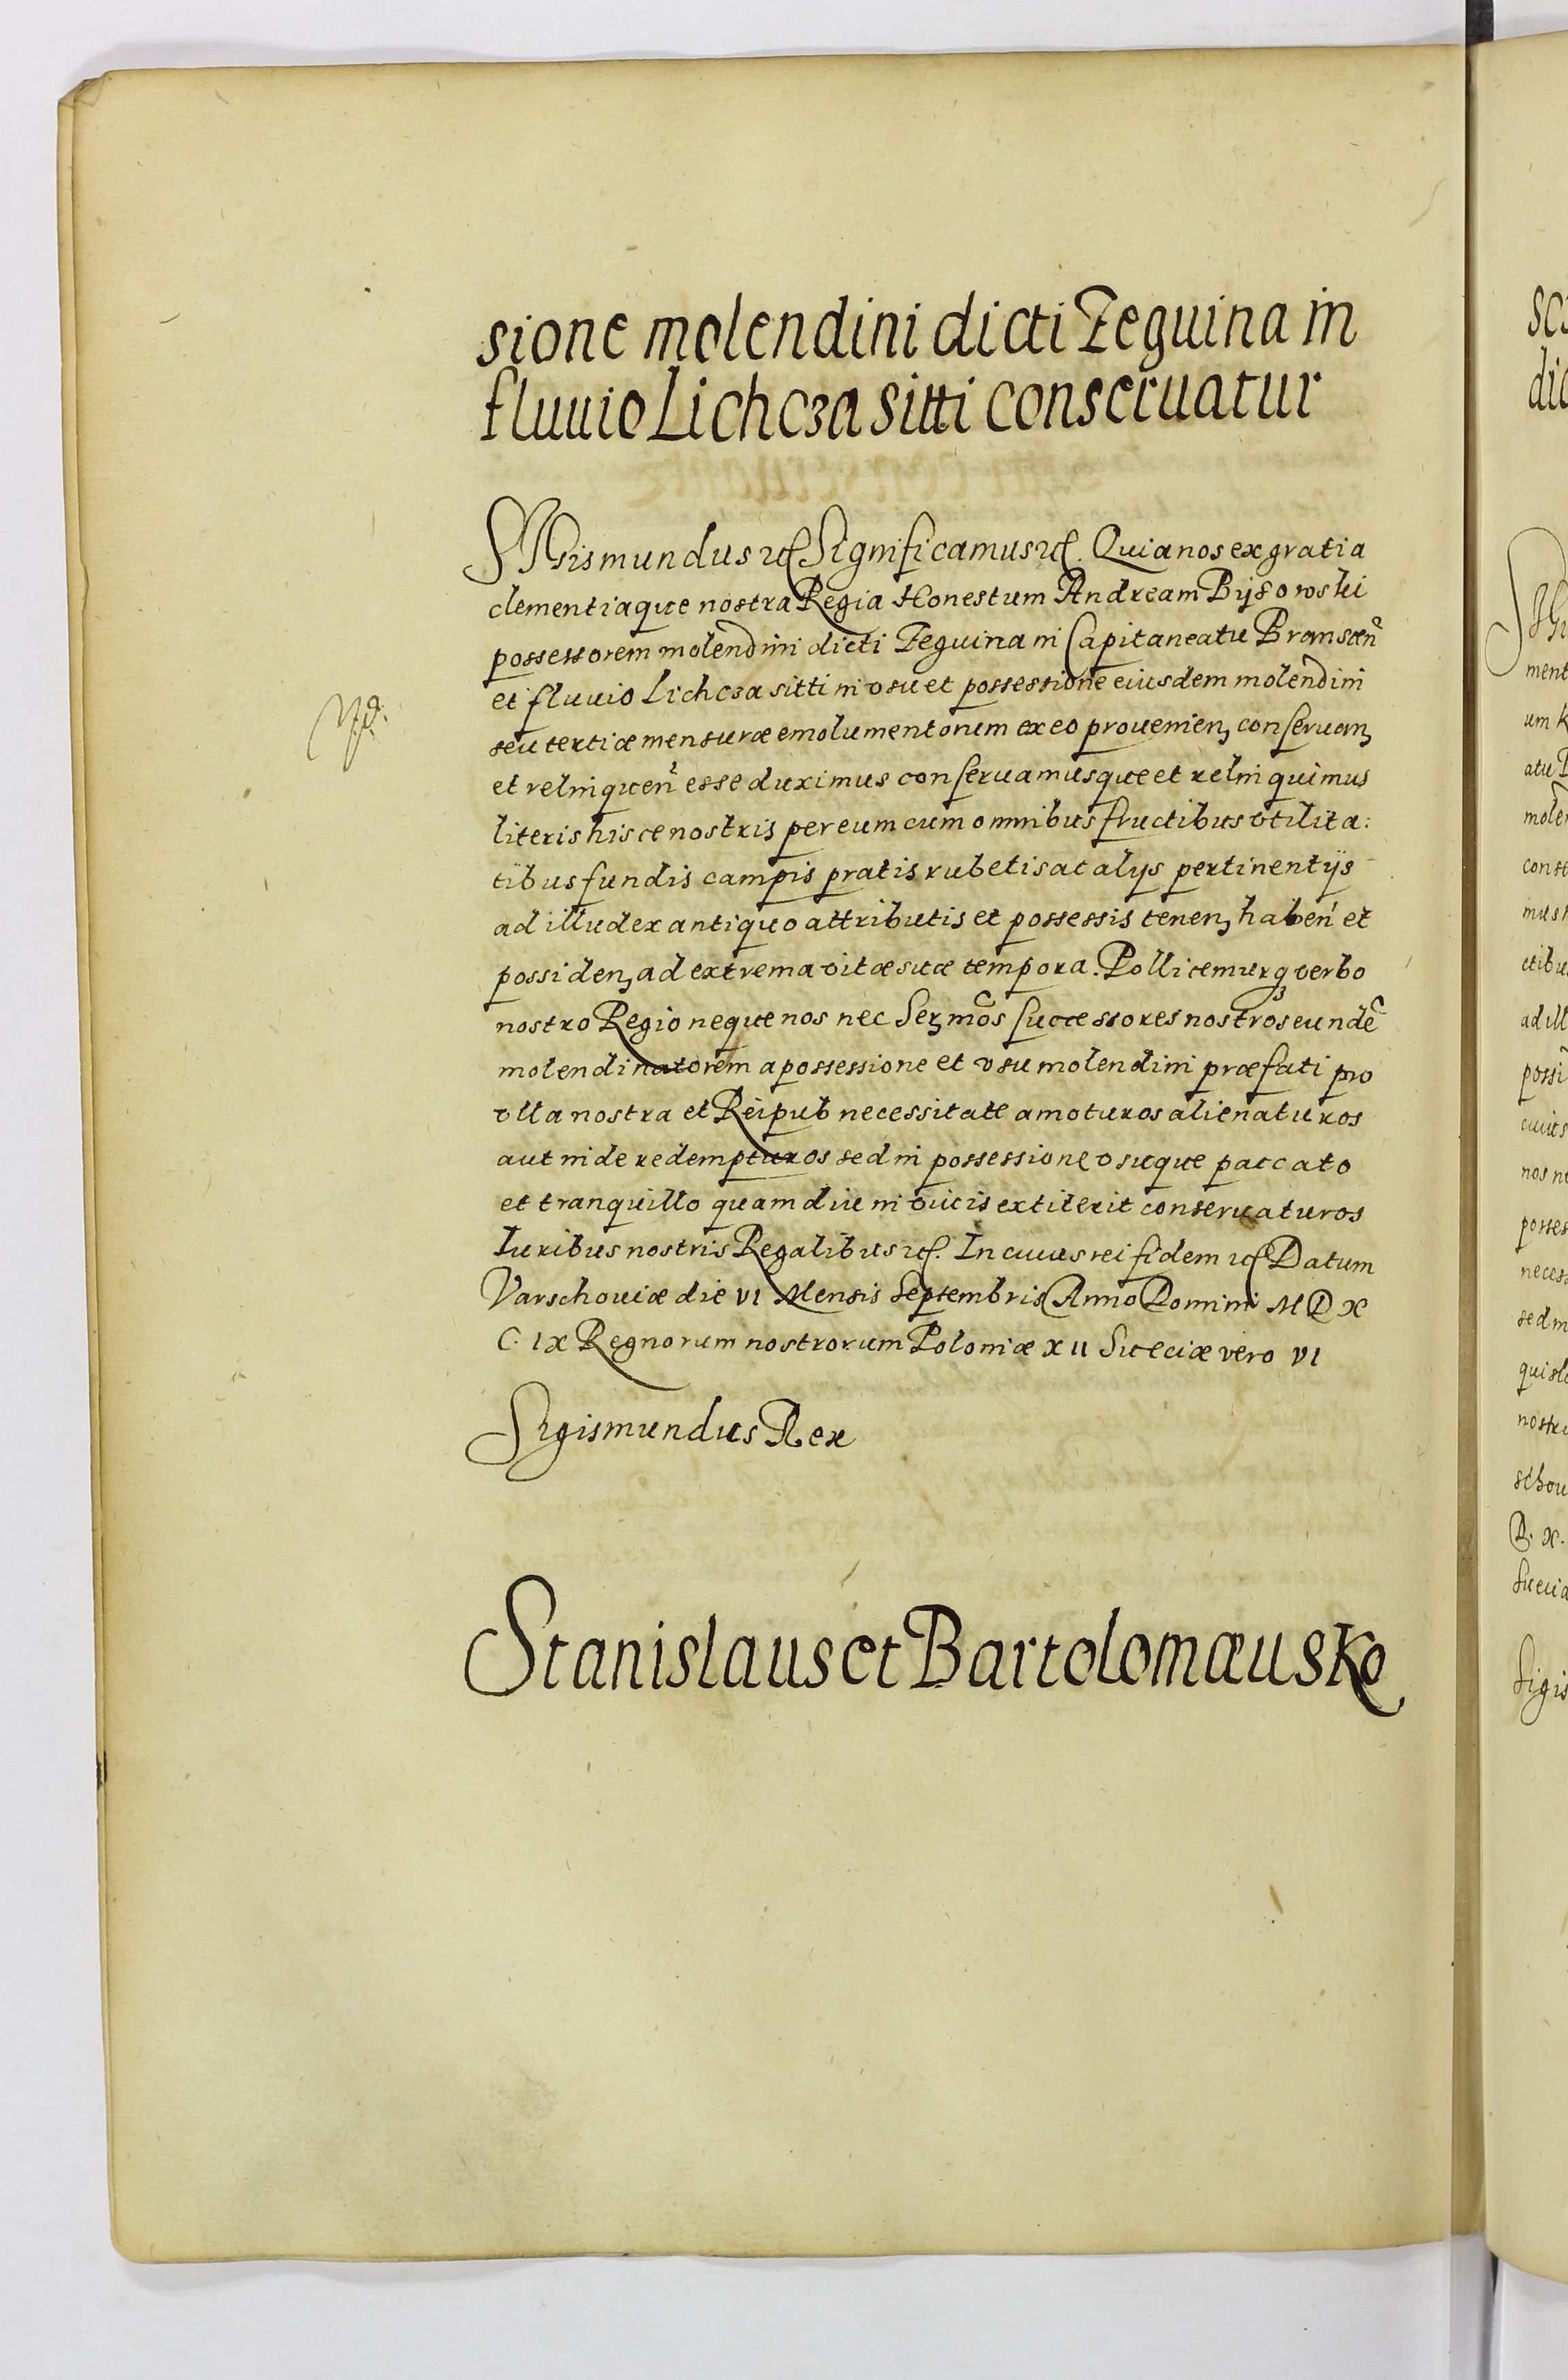 sione molendini dicti Zeguina in
fluuio Lichcza sitti conseruatur
Sigismundus etc Significamus etc. Quia nos ex gratia
clementiaque nostra Regia Honestum Andream Bysowski
possessorem molendini dicti Zeguina in Capitaneatu Bransceñ
et fluuio Lichcza sitti in vsu et possessione eiusdem molendini
seu tertiæ mensuræ emolumentorum ex eo prouenien, conseruan,
et relinqueñ esse duximus conseruamusque et relinquimus
literis hisce nostris per eum cum omnibus fructibus vtilita:
tibus fundis campis pratis rubetis ac alys pertinentijs
ad illud ex antiquo attributis et possessis tenen, habeñ et
possiden, ad extrema vitæ suæ tempora. Pollicemurq3 verbo
nostro Regio neque nos nec Ser,mos successores nostros eundẽ
molendinatorem a possessione et vsu molendini præfati pro
vlla nostra et Reipub necessitate amoturos alienaturos
aut inde redempturos sed in possessione vsuque paccato
et tranquillo quamdiu in viuis extiterit conseruaturos
Iuribus nostris Regalibus etc. In cuius rei fidem etc Datum
Varschouiæ die VI Mensis Septembris Anno Domini M D X
C. IX Regnorum nostrorum Poloniæ XII Sueciæ vero VI
Sigismundus Rex
Stanislaus et Bartolomæus Ko